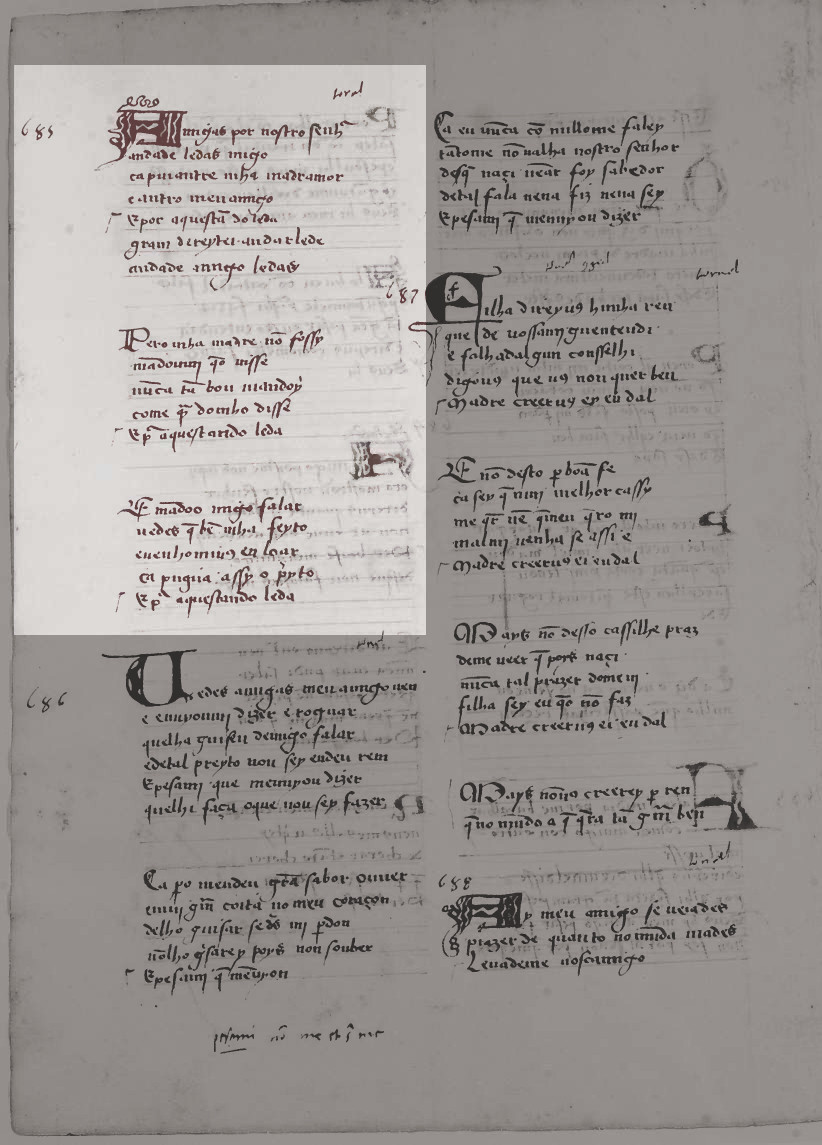 tornel
685
Amigas por nostro senhr̃
andade ledas migo
ca puiantre mh̃a madramor
eantro meu amigo
E por aquestã do leda
gram dereytei andar lede
andade amigo ledas
Pero mha madre nõ fossy
mãdoumi q̃o visse
nũca tã bõu mandoy
come q̃ndo mho disse
E p̃ aquestando leda
E mãdoo migo falar
uedes q̃ bẽ mha feyto
euenhomiuꝯ en loar
ca puguia assy o p̃yto
E p̃ aquestando leda
tornel
686
Uedes amigas meu amigo uen
e enuyoumi dizer e roguar
quelha guiseu demigo falar
edetal preyto nou sey endeu rem
E pesami que menuyou dizer
quelhi faça oque nou sey fazer
Ca ꝑo mendeu gr̃a sabor ouuer
emui gr̃a coita no meu coraçon
delho guisar se dꝰ mi ꝑdon
nõlho gⁱsarey poys non souber
E pesami q̃ mẽuyou
Ca eu nũca cõ nullome faley
tãtome nõ ualha nostro senhor
desq̃ naçi nẽar foy sabedor
detal fala nena fiz nena sey
E pesami q̃ menuyou dizer
tornel
687
Filha direyuꝯ hunha ren
que de uossamigu entendi
e falhadalgun consselhi
digouꝯ que uꝯ non quer ben
Madre creeruꝯ ey eu dal
E nõ desto ꝑ boã fe
ca sey q̃ mui melhor cassy
me q̃r uẽ q̃meu q̃ro mi
malmi uenha se assi e
Madre creeruꝯ ei eu dal
Mays nõ desso cassilhe praz
deme ueer q̃ poys naçi
nũca tal prazer dome ui
filha sey eu q̃o nõ faz
Madre creeruꝯ ei eu dal
Mays nõuꝯ creerey ꝑ ren
q̃ no mũdo a q̃ q̃ira tã gr̃m ben
tornel
688
Ay meu amigo se ueiades
prazer de quanto no mũda mades
Leuademe uoscamigo